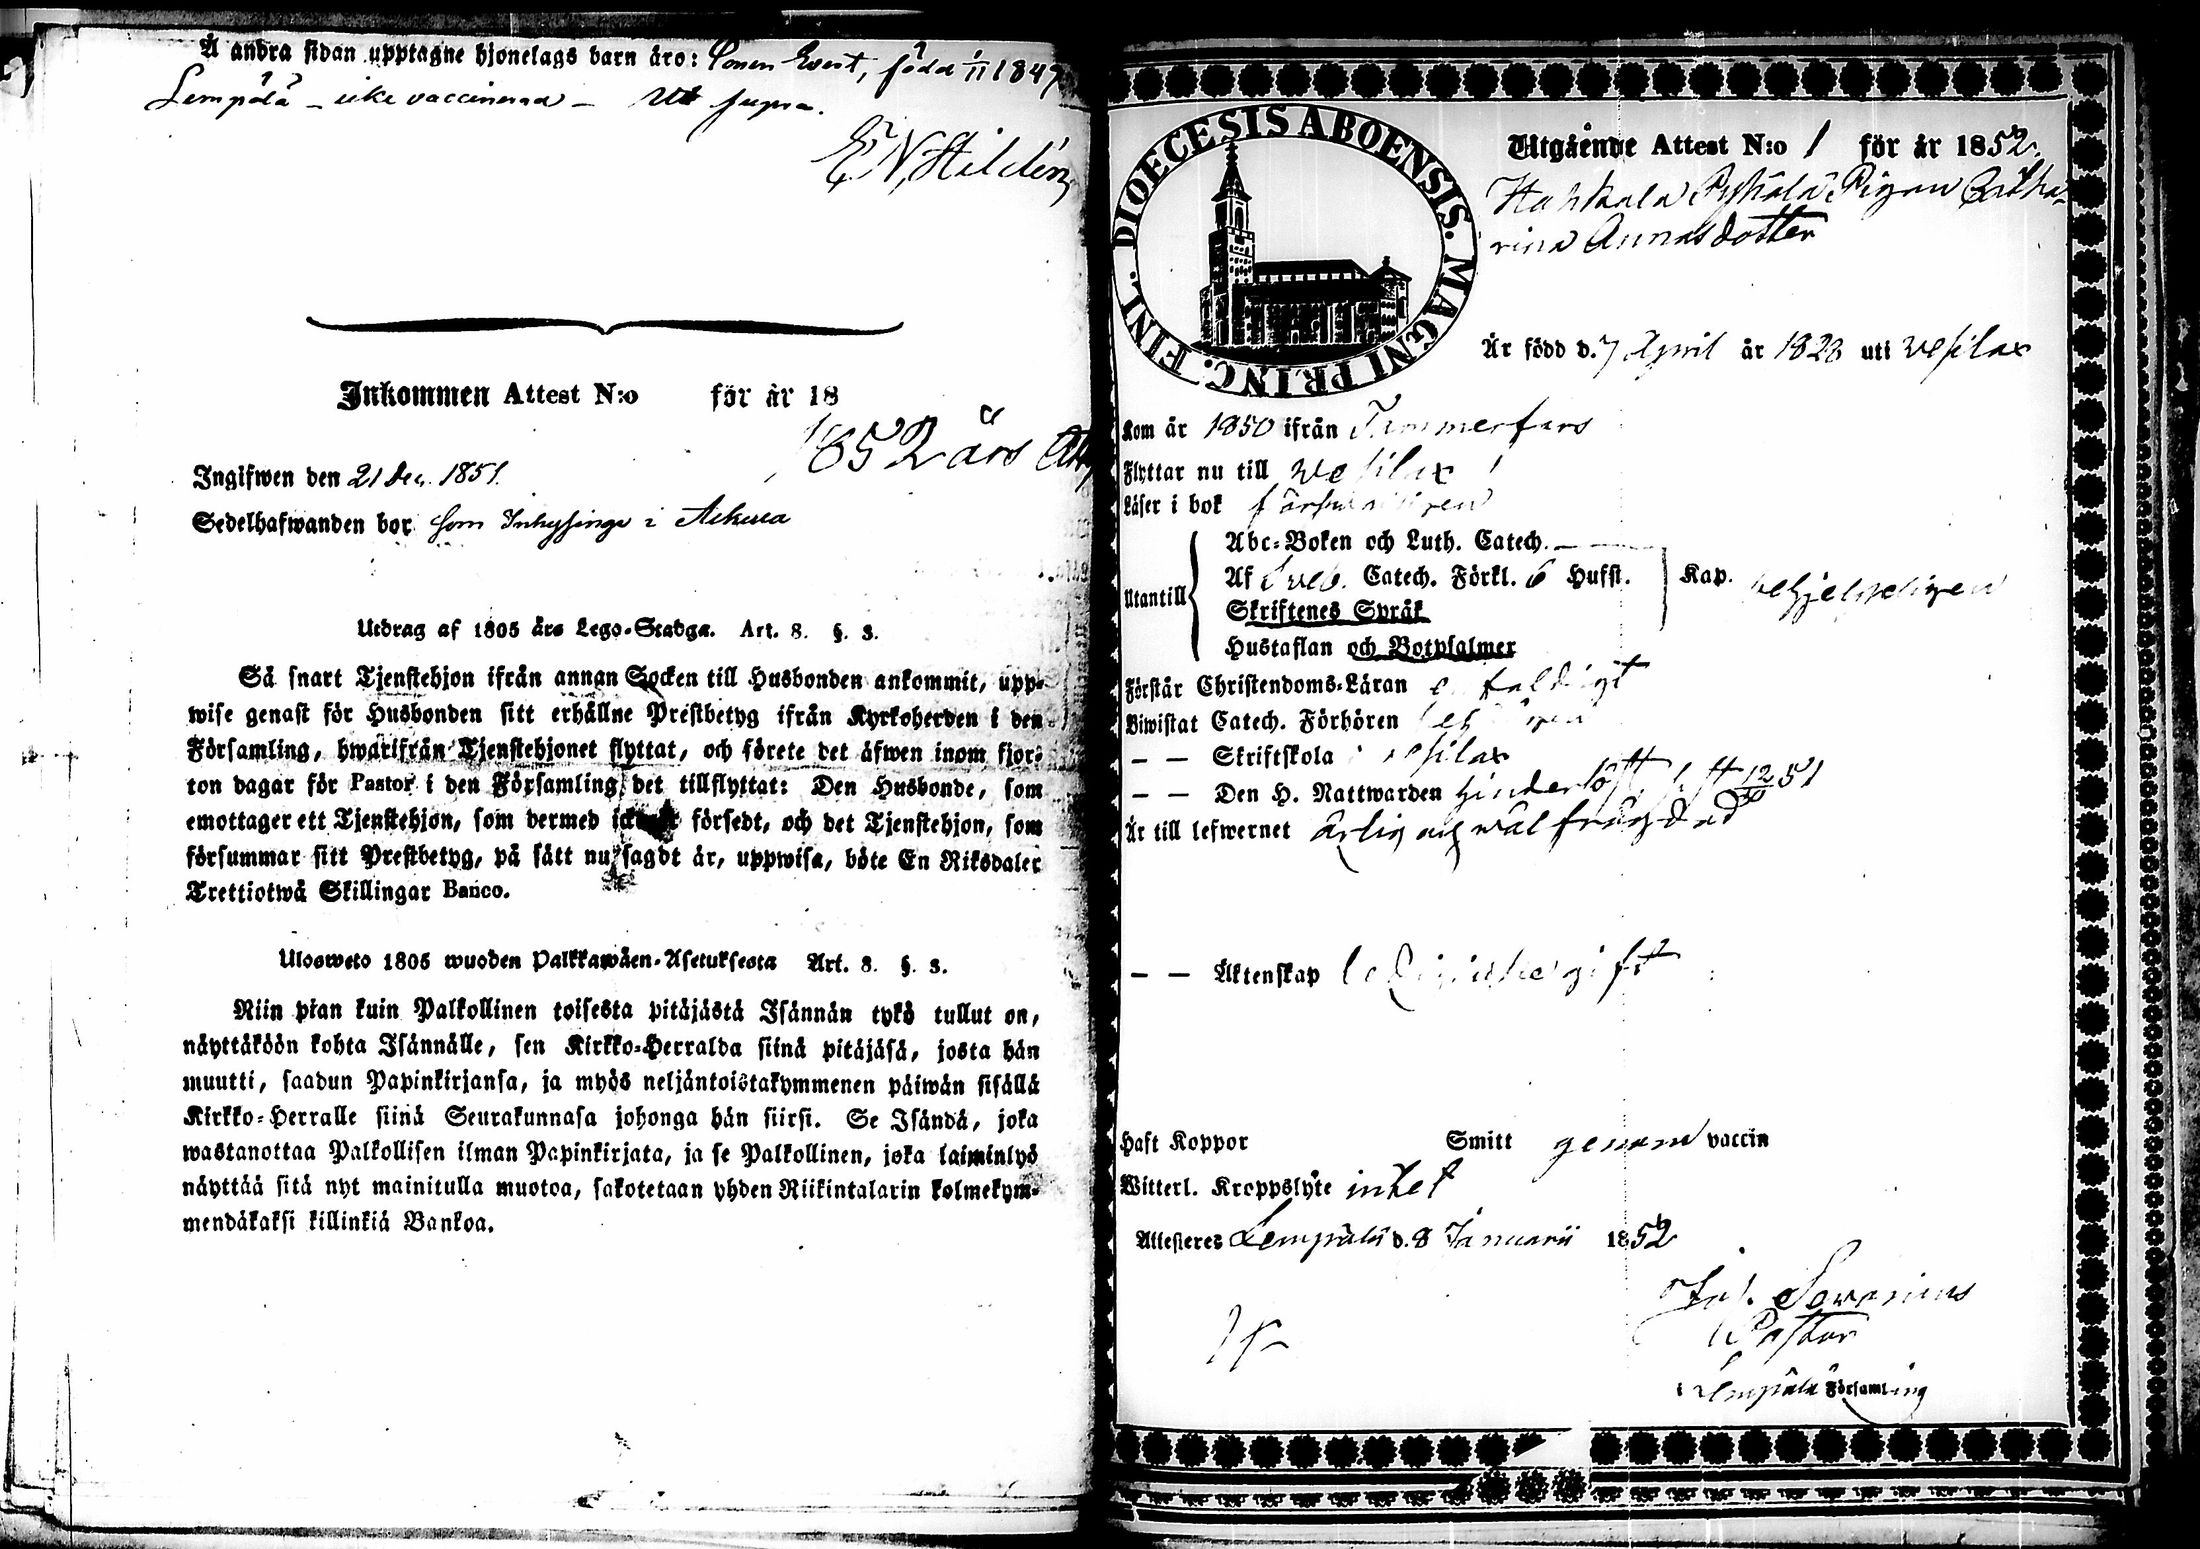 Å andra sidan upptagne hjonelags barn äro: Sonen Evert, född 1/11 1849
Lempälä – icke vaccinerad – Ut supra.
E. N. Hildén
Inkommen Attest N:o för år 18
1852 års Att
Ingifwen den 21 Dec. 1851.
Sedelhafwanden bor som Inhysinge i
Utdrag af 1805 års Lego-Stadga. Art. 8. §. 3.
Så snart Tjenstehjon ifrån annan Socken till Husbonden ankommit, upp-
wise genast för Husbonden sitt erhållne Prestbetyg ifrån Kyrkoherden i den
Församling, hwarifrån Tjenstehjonet flyttat, och förete det äfwen inom fjor-
ton dagar för Pastor i den Församling det tillflyttat: Den Husbonde, som
emottager ett Tjenstehjon, som dermed icke är försedt, och det Tjenstehjon, som
försummar sitt Prestbetyg, på sätt nu sagdt är, uppwisa, böte En Riksdaler
Trettiotwå Skillingar Banco.
Ulosweto 1805 wuoden Palkkawäen-Asetuksesta Art. 8. §. 3.
Niin pian kuin Palkollinen toisesta pitäjästä Isännän tykö tullut on,
näyttäköön kohta Isännälle, sen Kirkko-Herralda siinä pitäjäsä, josta hän
muutti, saadun Papinkirjansa, ja myös neljäntoistakymmenen päiwän sisällä
Kirkko-Herralle siinä Seurakunnasa johonga hän siirsi. Se Isändä, joka
wastanottaa Palkollisen ilman Papinkirjata, ja se Palkollinen, joka laiminlyö
näyttää sitä nyt mainitulla muotoa, sakotetaan yhden Riikintalarin kolmekym-
mendäkaksi killinkiä Bankoa.
DIOECESIS ABOENSIS. MAGNI PRINC. FINL.
Utgående Attest N:o 1 för år 1852.
Hahkala Pyhälä Pigan Catha-
rina Annasdotter
Är född d. 7 April år 1828 uti Vesilax
Kom år 1850 ifrån Tammerfors
Flyttar nu till Vesilax
Läser i bok försvarligen
Utantill
Abc-Boken och Luth. Catech. –
Af Sveb. Catech. Förkl. 6 Hufst. Kap. behjelpeligen
Skriftenes Språk
Hustaflan och Botpsalmer
Förstår Christendoms-Läran enfaldigt
Biwistat Catech. Förhören behörigen
— — Skriftskola i Vesilax
— — Den H. Nattwarden hinderlöst, sist 12/10 51
Är till lefwernet ärlig och wäl frägdad
— — Äktenskap ledig till gift
Haft Koppor Smitt genom vaccin
Witterl. Kroppslyte intet
Attesteres Lempälä d. 8 Januarii 1852
Joh. Soverinus
Pastor
i Lempälä Församling